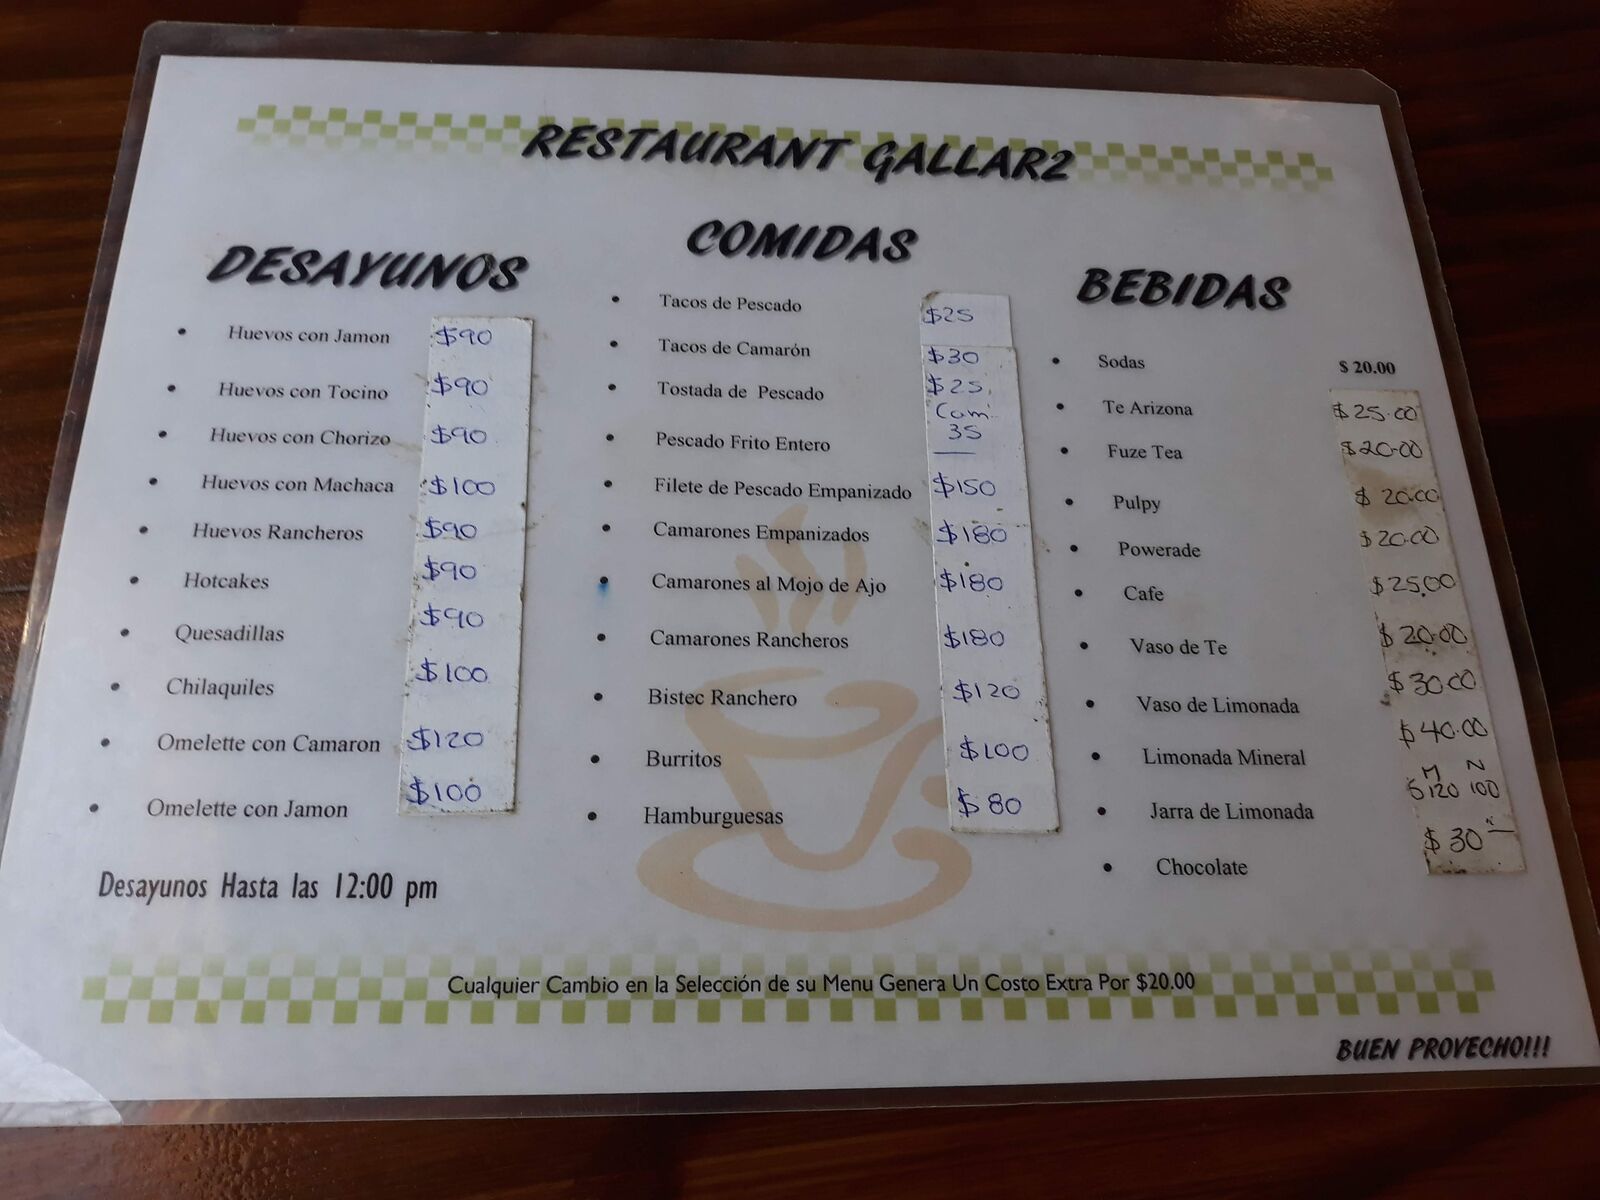 RESTAURANT GALLAR2
DESAYUNOS
Huevos con Jamon $90
Huevos con Tocino $90
Huevos con Chorizo $90
Huevos con Machaca $100
Huevos Rancheros $90
Hotcakes $90
Quesadillas $90
Chilaquiles $100
Omelette con Camaron $120
Omelette con Jamon $100
Desayunos Hasta las 12:00 pm
COMIDAS
Tacos de Pescado $25
Tacos de Camarón $30
Tostada de Pescado $25
Cam
35
Pescado Frito Entero
Filete de Pescado Empanizado $150
Camarones Empanizados $180
Camarones al Mojo de Ajo $180
Camarones Rancheros $180
Bistec Ranchero $120
Burritos $100
Hamburguesas $80
BEBIDAS
Sodas $ 20.00
Te Arizona $25.00
Fuze Tea $20.00
Pulpy $20.00
Powerade $20.00
Cafe $25.00
Vaso de Te $20.00
Vaso de Limonada $30.00
Limonada Mineral $40.00
M N
Jarra de Limonada $120 100
Chocolate $30
Cualquier Cambio en la Selección de su Menu Genera Un Costo Extra Por $20.00
BUEN PROVECHO!!!